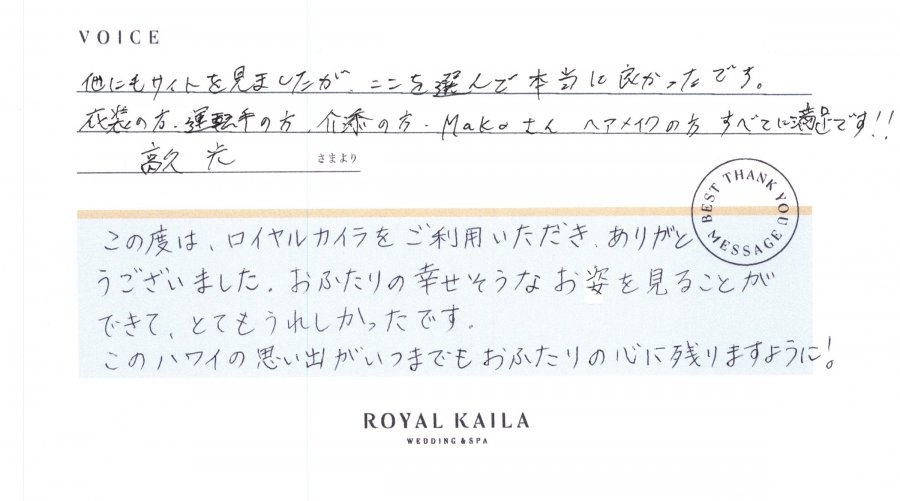 VOICE
他にもサイトを見ましたが、ここを選んで本当に良かったです。
衣装の方、運転手の方、介添の方・Makoさん ヘアメイクの方 すべてに満足です!!
高久 光 さまより
BEST THANK YOU MESSAGE
この度は、ロイヤルカイラをご利用いただき、ありがと
うございました。おふたりの幸せそうなお姿を見ることが
できて、とてもうれしかったです。
このハワイの思い出がいつまでもおふたりの心に残りますように!
ROYAL KAILA
WEDDING & SPA